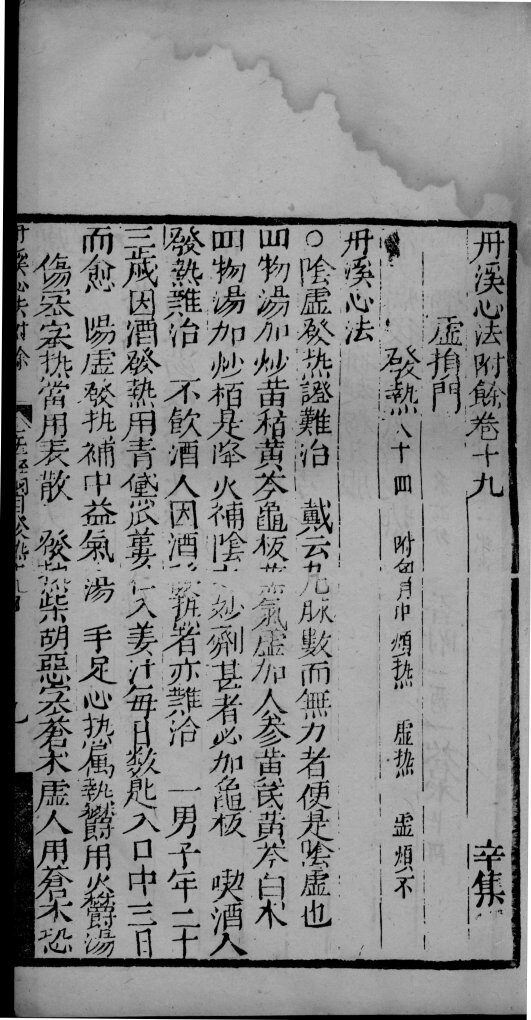 丹溪心法附餘卷十九　辛集
虛損門
發熱八十四　附胷中煩熱　虛熱　虛煩不
丹溪心法
○陰虛發熱證難治　戴云凡脉數而無力者便是陰虛也
四物湯加炒黄栢黄芩龜板　氣虛加人參黄芪黄芩白术
四物湯加炒栢是降火補陰　妙劑甚者必加龜板　喫酒人
發熱難治　不飲酒人因酒發熱者亦難治　一男子年二十
三歲因酒發熱用青黛瓜蔞仁入姜汁每日数匙入口中三日
而愈　陽虛發热補中益氣湯　手足心热屬熱鬱用火鬱湯
傷寒寒热當用表散　發热柴胡惡寒蒼术虛人用蒼术恐
丹溪心法附餘